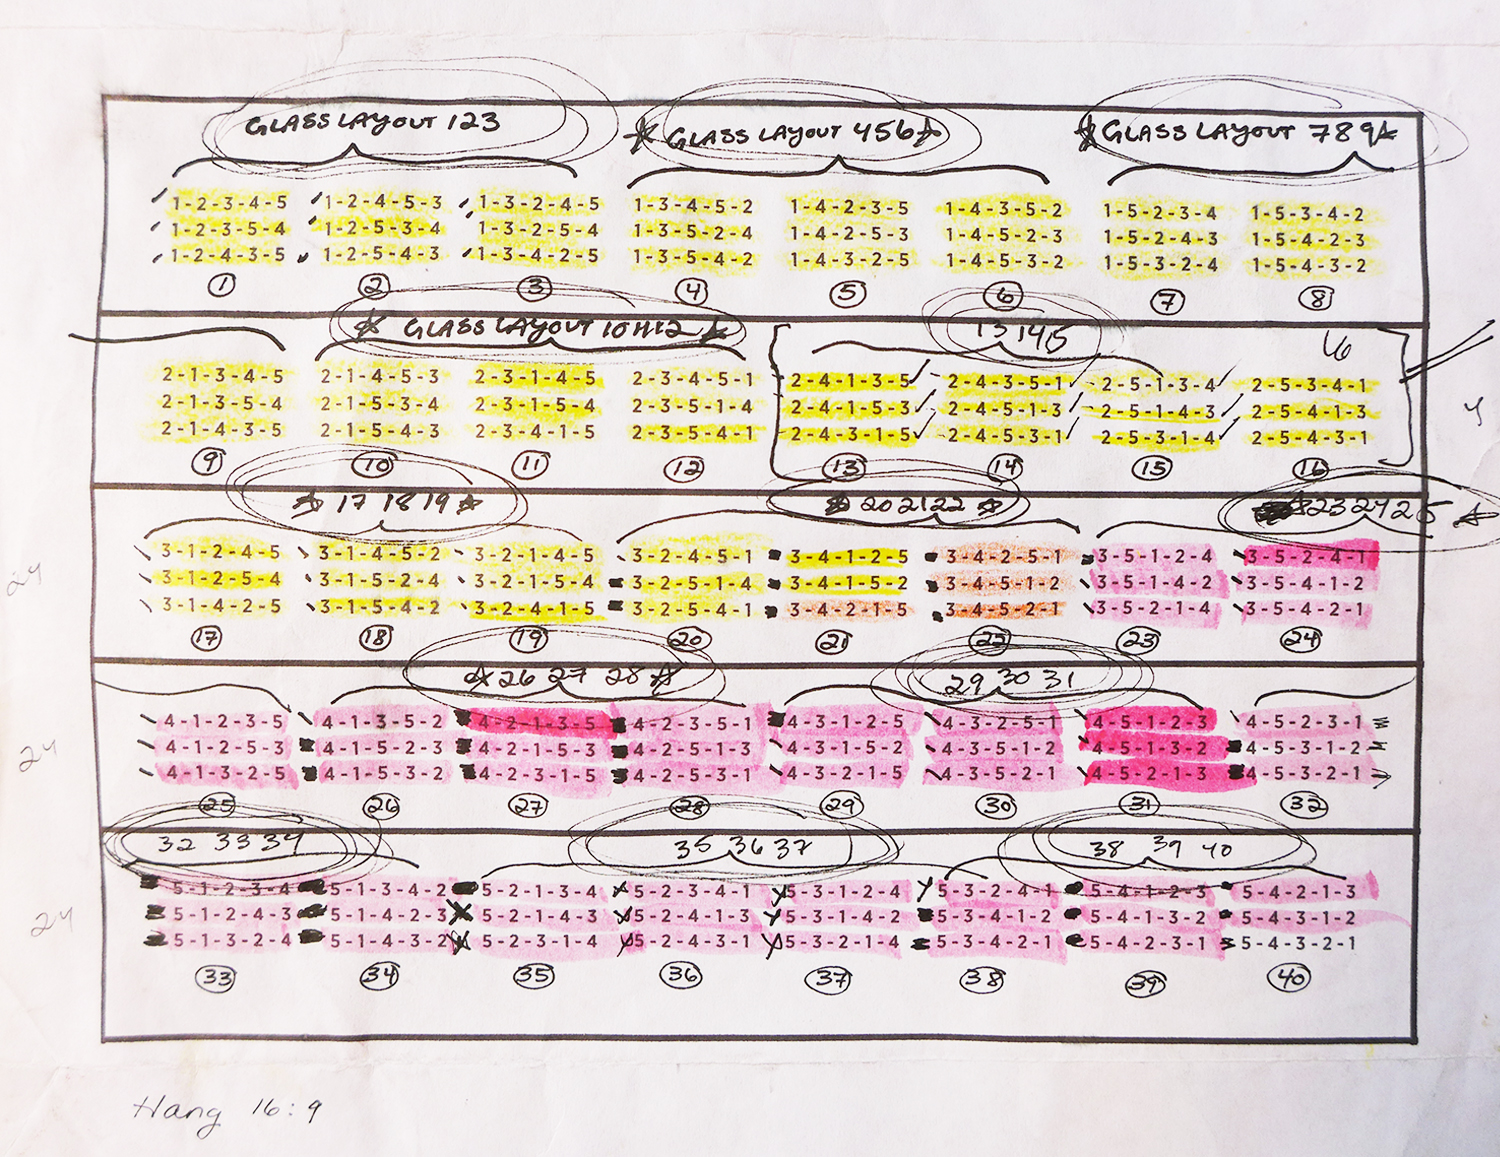 GLASS LAYOUT 123
☆ GLASS LAYOUT 456 ☆
☆ GLASS LAYOUT 789 ☆
1-2-3-4-5 1-2-4-5-3 1-3-2-4-5 1-3-4-5-2 1-4-2-3-5 1-4-3-5-2 1-5-2-3-4 1-5-3-4-2
1-2-3-5-4 1-2-5-3-4 1-3-2-5-4 1-3-5-2-4 1-4-2-5-3 1-4-5-2-3 1-5-2-4-3 1-5-4-2-3
1-2-4-3-5 1-2-5-4-3 1-3-4-2-5 1-3-5-4-2 1-4-3-2-5 1-4-5-3-2 1-5-3-2-4 1-5-4-3-2
1 2 3 4 5 6 7 8
☆ GLASS LAYOUT 10 11 12 ☆
13 14 15
16
2-1-3-4-5 2-1-4-5-3 2-3-1-4-5 2-3-4-5-1 2-4-1-3-5 2-4-3-5-1 2-5-1-3-4 2-5-3-4-1
2-1-3-5-4 2-1-5-3-4 2-3-1-5-4 2-3-5-1-4 2-4-1-5-3 2-4-5-1-3 2-5-1-4-3 2-5-4-1-3
2-1-4-3-5 2-1-5-4-3 2-3-4-1-5 2-3-5-4-1 2-4-3-1-5 2-4-5-3-1 2-5-3-1-4 2-5-4-3-1
9 10 11 12 13 14 15 16
☆ 17 18 19 ☆
☆ 20 21 22 ☆
☆ 23 24 25 ☆
3-1-2-4-5 3-1-4-5-2 3-2-1-4-5 3-2-4-5-1 3-4-1-2-5 3-4-2-5-1 3-5-1-2-4 3-5-2-4-1
24 3-1-2-5-4 3-1-5-2-4 3-2-1-5-4 3-2-5-1-4 3-4-1-5-2 3-4-5-1-2 3-5-1-4-2 3-5-4-1-2
3-1-4-2-5 3-1-5-4-2 3-2-4-1-5 3-2-5-4-1 3-4-2-1-5 3-4-5-2-1 3-5-2-1-4 3-5-4-2-1
17 18 19 20 21 22 23 24
☆ 26 27 28 ☆
29 30 31
4-1-2-3-5 4-1-3-5-2 4-2-1-3-5 4-2-3-5-1 4-3-1-2-5 4-3-2-5-1 4-5-1-2-3 4-5-2-3-1
24 4-1-2-5-3 4-1-5-2-3 4-2-1-5-3 4-2-5-1-3 4-3-1-5-2 4-3-5-1-2 4-5-1-3-2 4-5-3-1-2
4-1-3-2-5 4-1-5-3-2 4-2-3-1-5 4-2-5-3-1 4-3-2-1-5 4-3-5-2-1 4-5-2-1-3 4-5-3-2-1
25 26 27 28 29 30 31 32
32 33 34
35 36 37
38 39 40
5-1-2-3-4 5-1-3-4-2 5-2-1-3-4 5-2-3-4-1 5-3-1-2-4 5-3-2-4-1 5-4-1-2-3 5-4-2-1-3
24 5-1-2-4-3 5-1-4-2-3 5-2-1-4-3 5-2-4-1-3 5-3-1-4-2 5-3-4-1-2 5-4-1-3-2 5-4-3-1-2
5-1-3-2-4 5-1-4-3-2 5-2-3-1-4 5-2-4-3-1 5-3-2-1-4 5-3-4-2-1 5-4-2-3-1 5-4-3-2-1
33 34 35 36 37 38 39 40
Hang 16:9